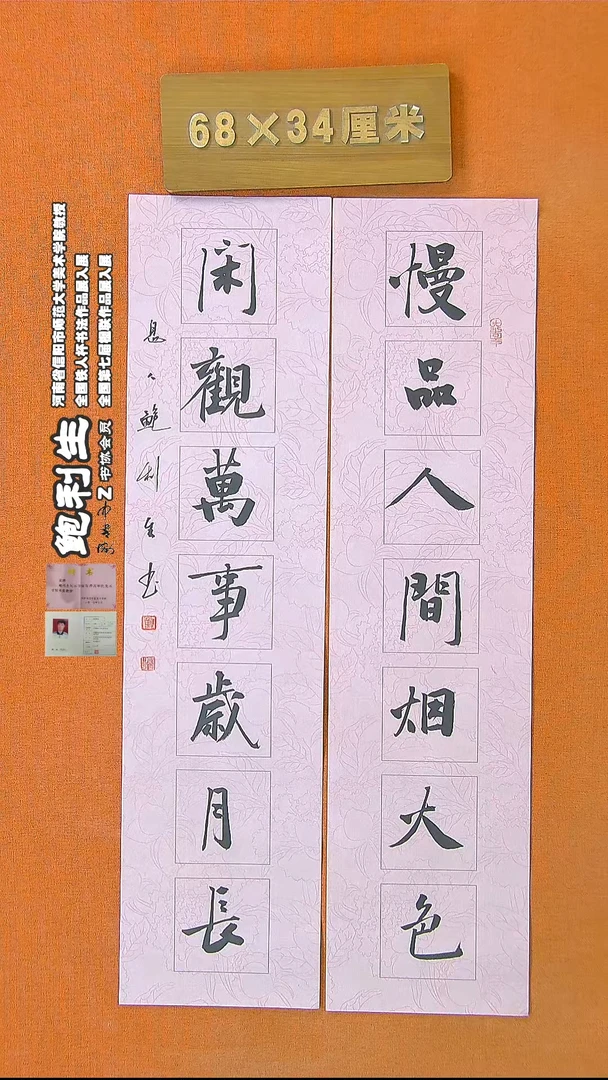 68×34厘米
慢品人間烟火色
闲觀萬事歲月長
鲍利生书
河南省信阳市师范大学美术学院教授
全国铁人杯书法作品展入展
全国第七届楹联作品展入展
鲍利生
书协会员